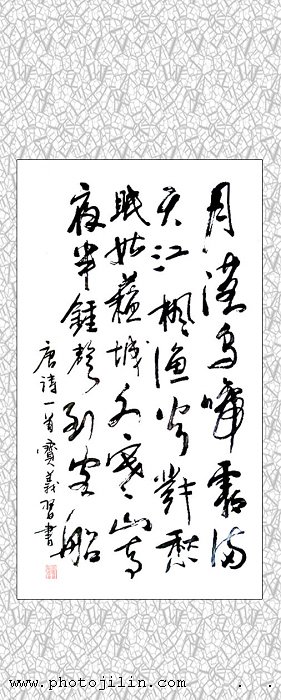 月落烏啼霜滿
天江楓漁火對愁
眠姑蘇城外寒山寺
夜半鍾聲到客船
唐詩一首義習書
www.photojilin.com